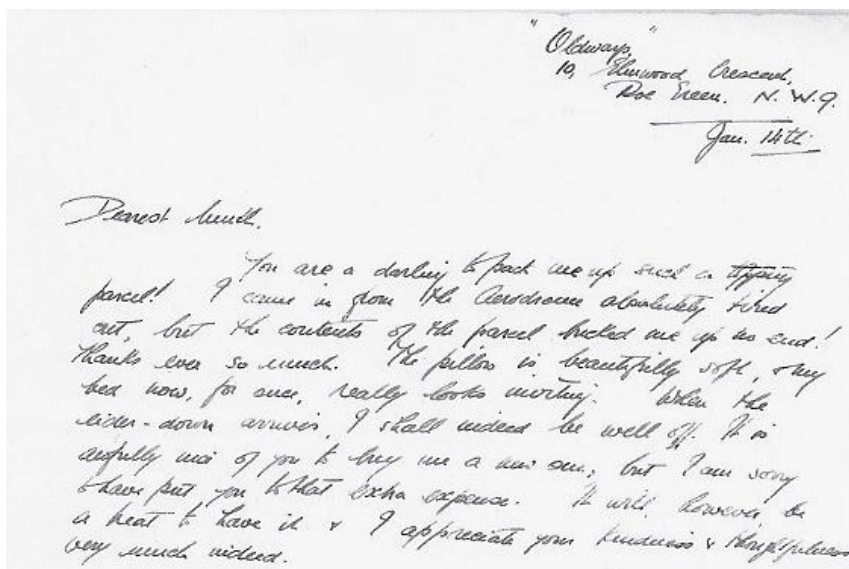 "Oldways,"
10, Elmwood Crescent,
Roe Green. N.W.9.
Jan. 14th
Dearest
You are a darling to pack me up such a ripping
parcel! I came in from the Aerodrome absolutely tired
out, but the contents of the parcel bucked me up no end!
Thanks ever so much. The pillow is beautifully soft, & my
bed now, for once, really looks inviting. When the
eider-down arrives, I shall indeed be well off. It is
awfully nice of you to buy me a new one, but I am sorry
to have put you to that extra expense. It will, however be
a treat to have it & I appreciate your kindness & thoughtfulness
very much indeed.